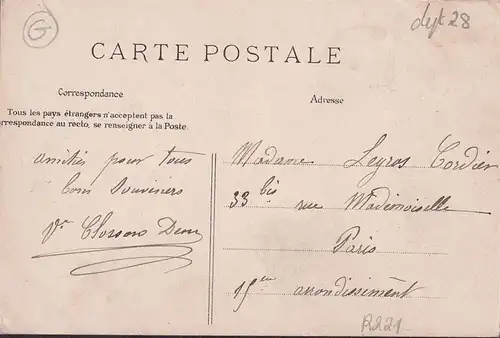 G
dyt 28
CARTE POSTALE
Correspondance
Tous les pays étrangers n'acceptent pas la
correspondance au recto, se renseigner à la Poste.
Adresse
amitiés pour tous
bons souvenirs
Madame Leyros Cordier
33 bis rue Mademoiselle
Paris
15em arrondissement
R221